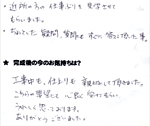 ・近所の方の仕事ぶりを見学させて
もらいました。
・なおして 質問、質問も すぐに 答えて頂いた事。
★ 完成後の今のお気持ちは?
工事中も、仕上りも 親切にして頂きました。
こちらの要望にも 心良く 受けてもらい
うれしく思っております。
ありがとうございました。